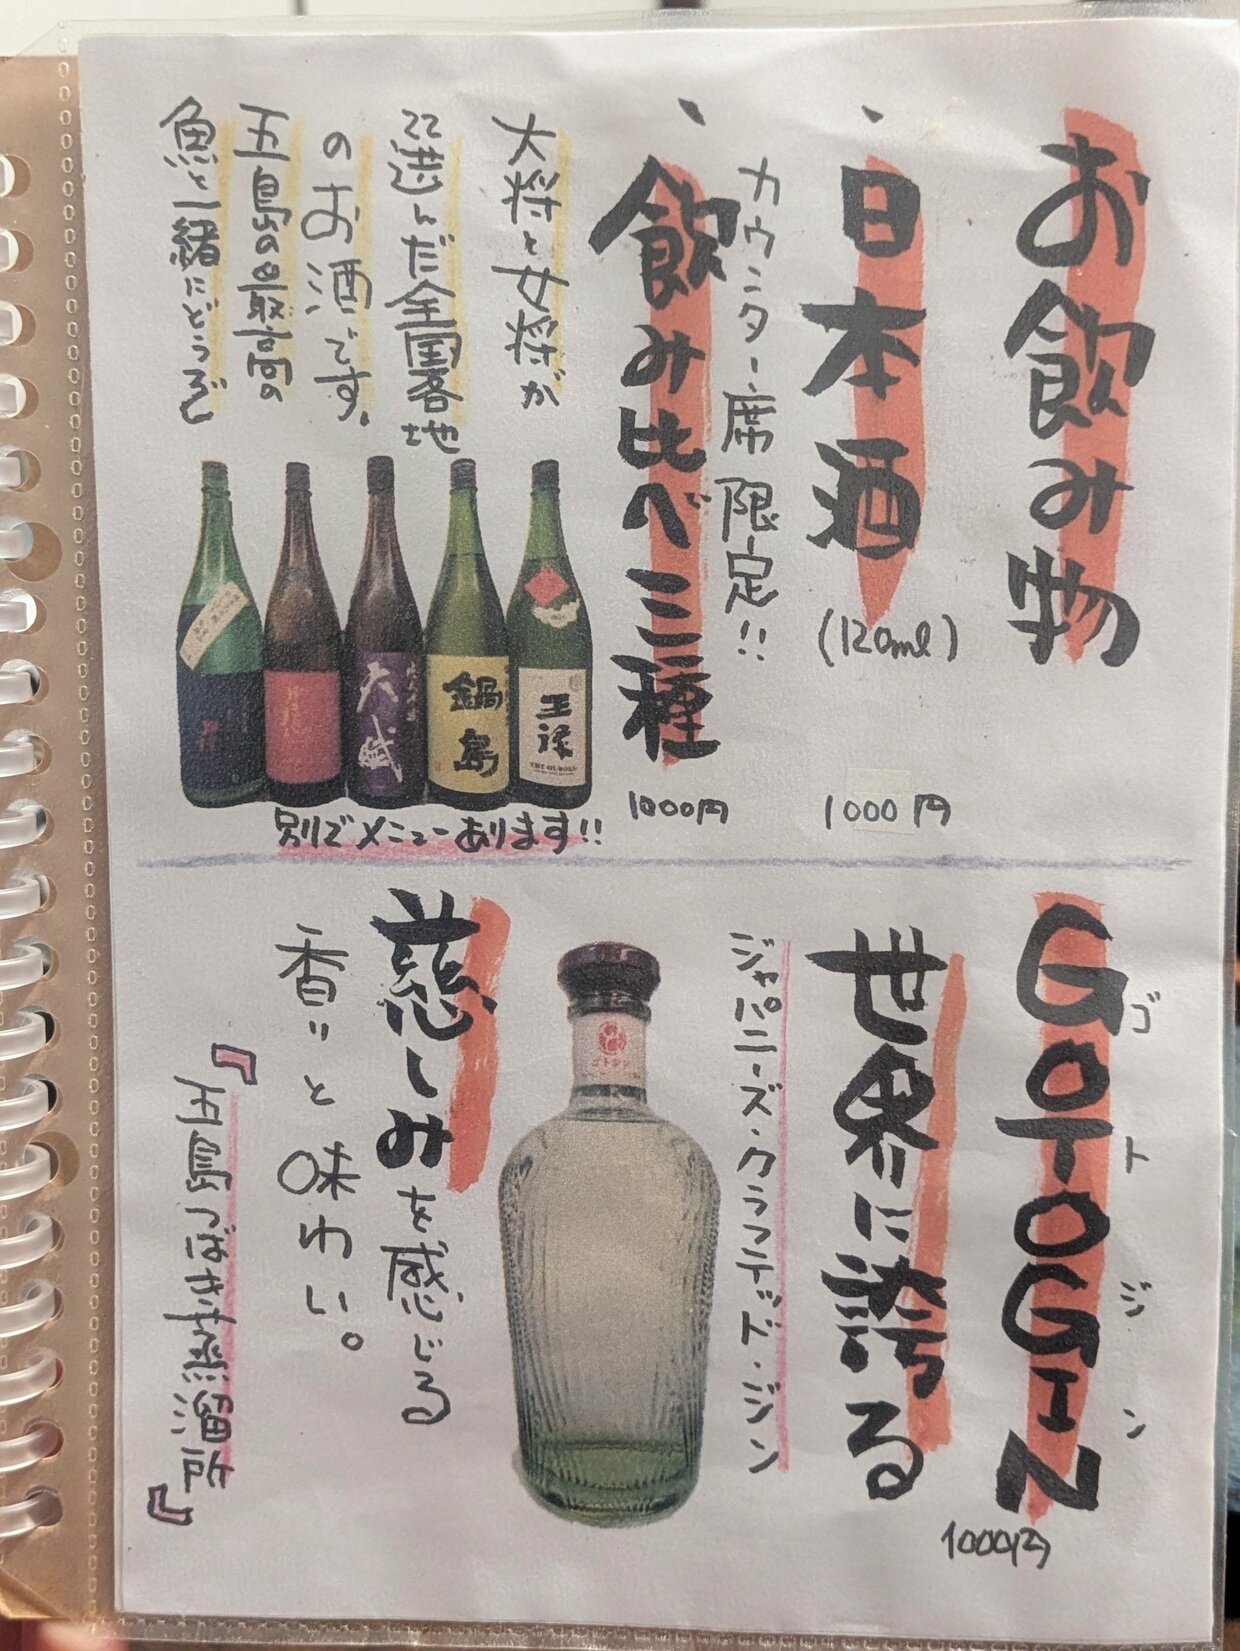 お飲み物
・日本酒
(120ml)
1000円
カウンター席限定!!
・飲み比べ三種
1000円
大将と女将が
選んだ全国各地
のお酒です。
五島の最高の
魚と一緒にどうぞ
王祿
鍋島
天賦
別でメニューあります!!
GOTOGIN
ゴトジン
1000円
世界に誇る
ジャパニーズ・クラフテッド・ジン
ゴトジン
慈しみを感じる
香りと味わい。
『五島つばき蒸溜所』